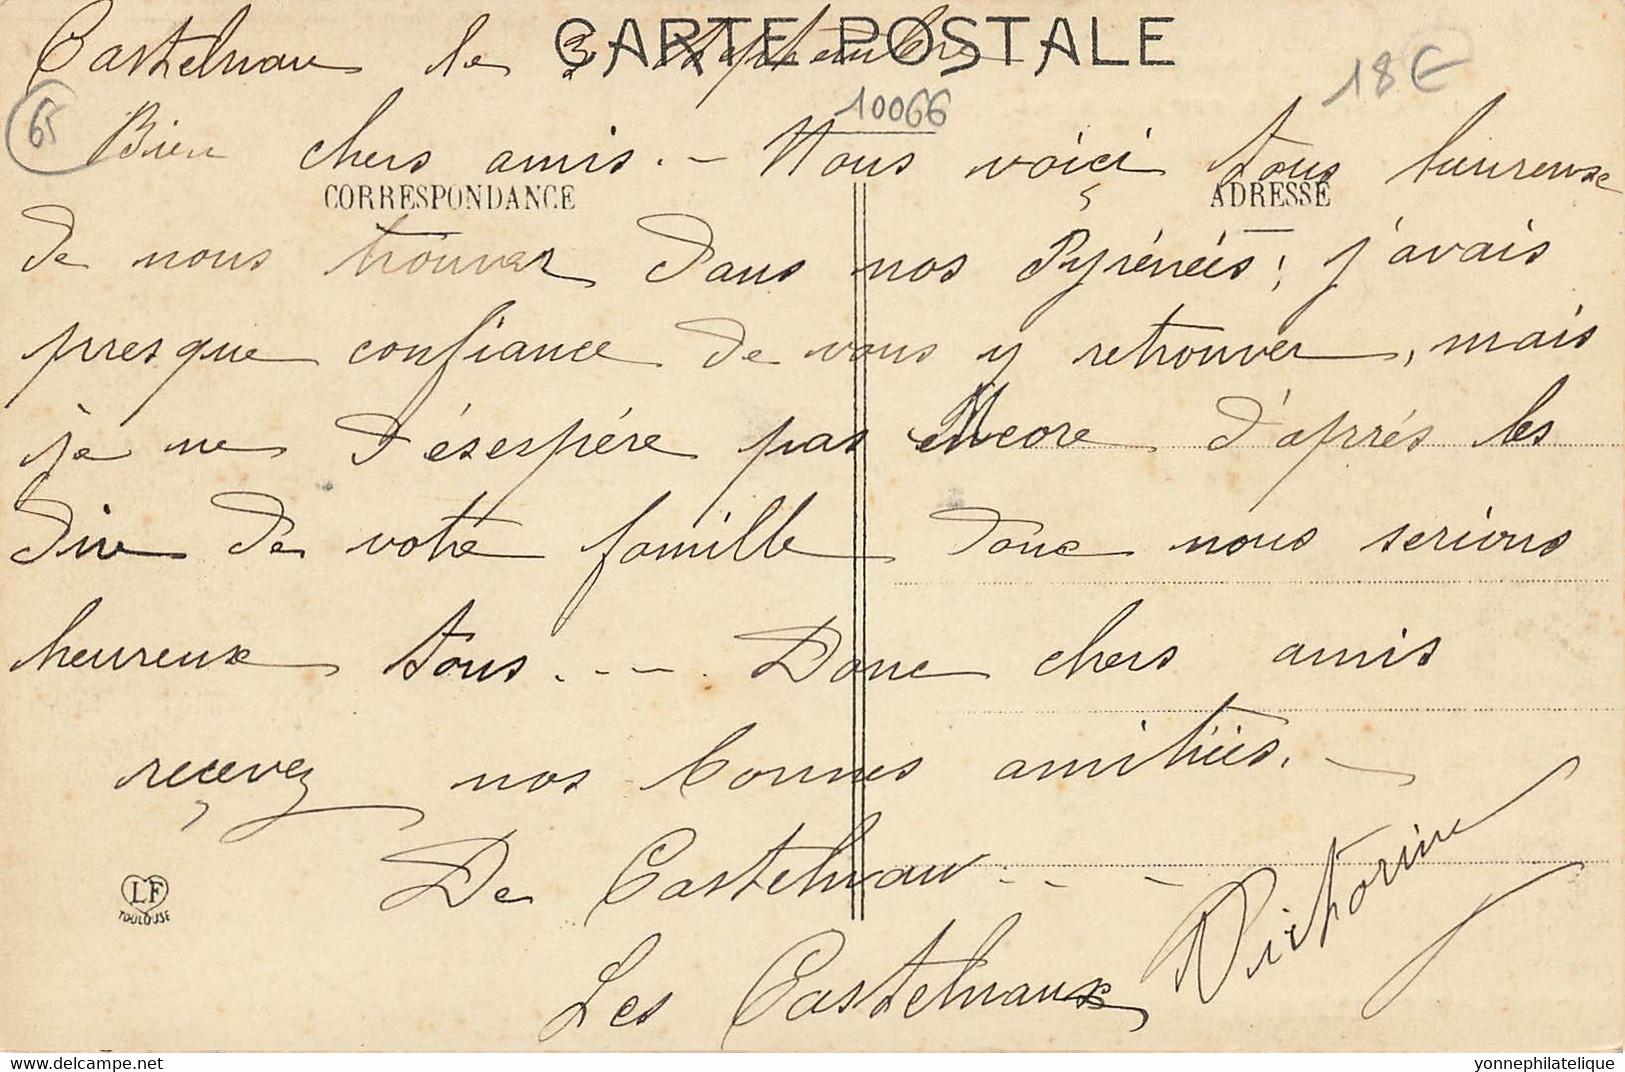 CARTE POSTALE
Castelnau le 3 Septembre
18€
65
10066
Bien chers amis. – Nous voici tous heureuse
CORRESPONDANCE
ADRESSE
de nous trouver dans nos Pyrénéés; j'avais
presque confiance de vous y retrouver, mais
je ne désespére pas encore d'aprrés les
dire de votre famille donc nous serions
heureux tous. - - - . Donc chers amis
reçevez nos bonnes amitiées. –
De Castelnau . - - -
Victorine
Les Castelnaux
LF
TOULOUSE
delcampe.net
yonnephilatelique